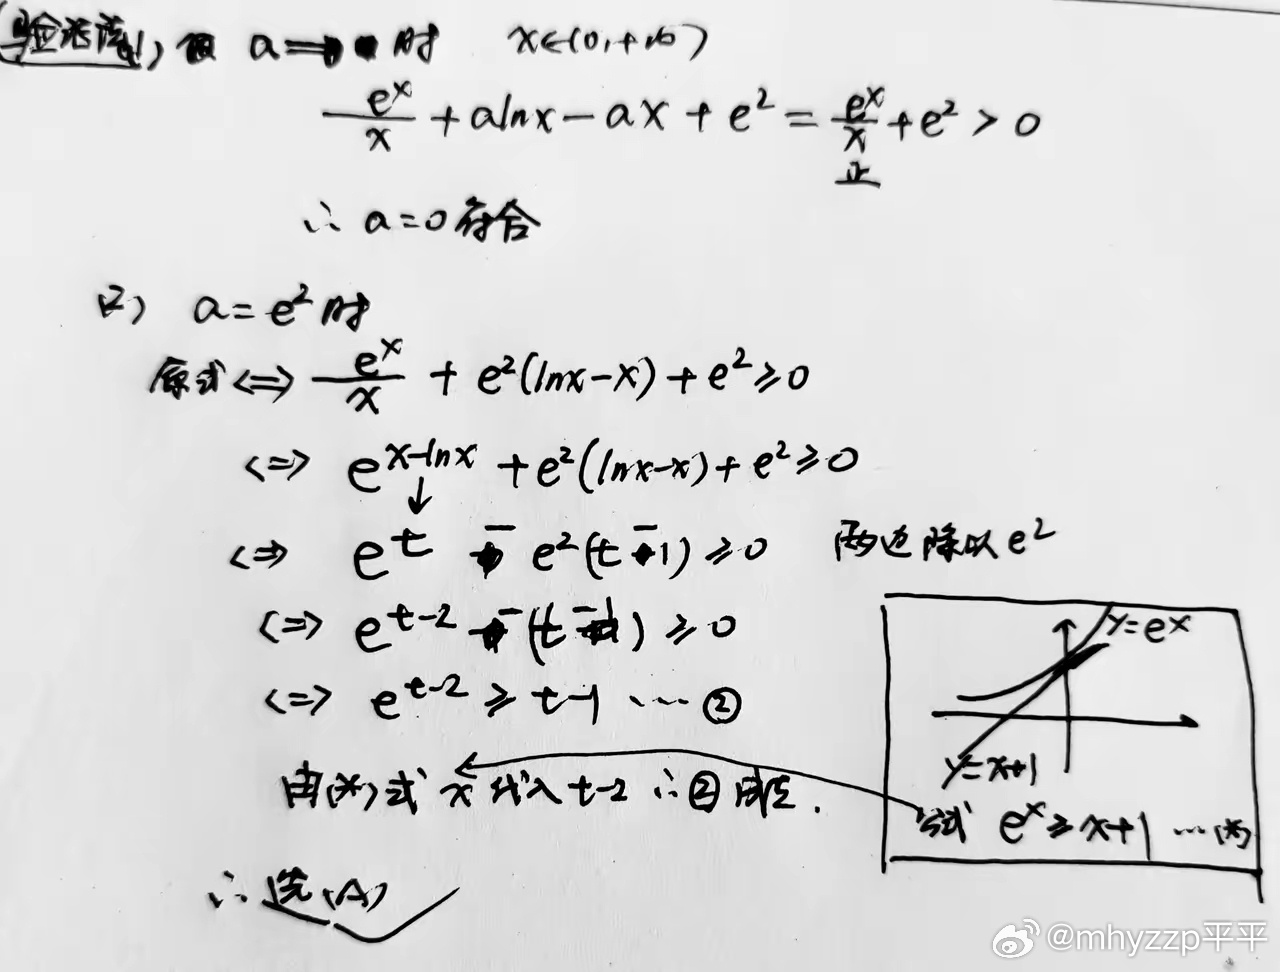 (验光法), 取 a=0 时 x∈(0,+∞)
e^x/x + alnx - ax + e² = e^x/x + e² > 0
正
∴ a=0 符合
(2) a=e² 时
原式 <=> e^x/x + e²(lnx-x) + e² ≥ 0
<=> e^(x-lnx) + e²(lnx-x) + e² ≥ 0
↓
<=> e^t - e²(t-1) ≥ 0 两边除以 e²
<=> e^(t-2) - (t-1) ≥ 0
<=> e^(t-2) ≥ t-1 ... ②
y=e^x
y=x+1
由(*)式 x 代入 t-2 ∴ ② 成立.
e^x ≥ x+1 ... (*)
∴ 选(A)
@mhyzzp平平